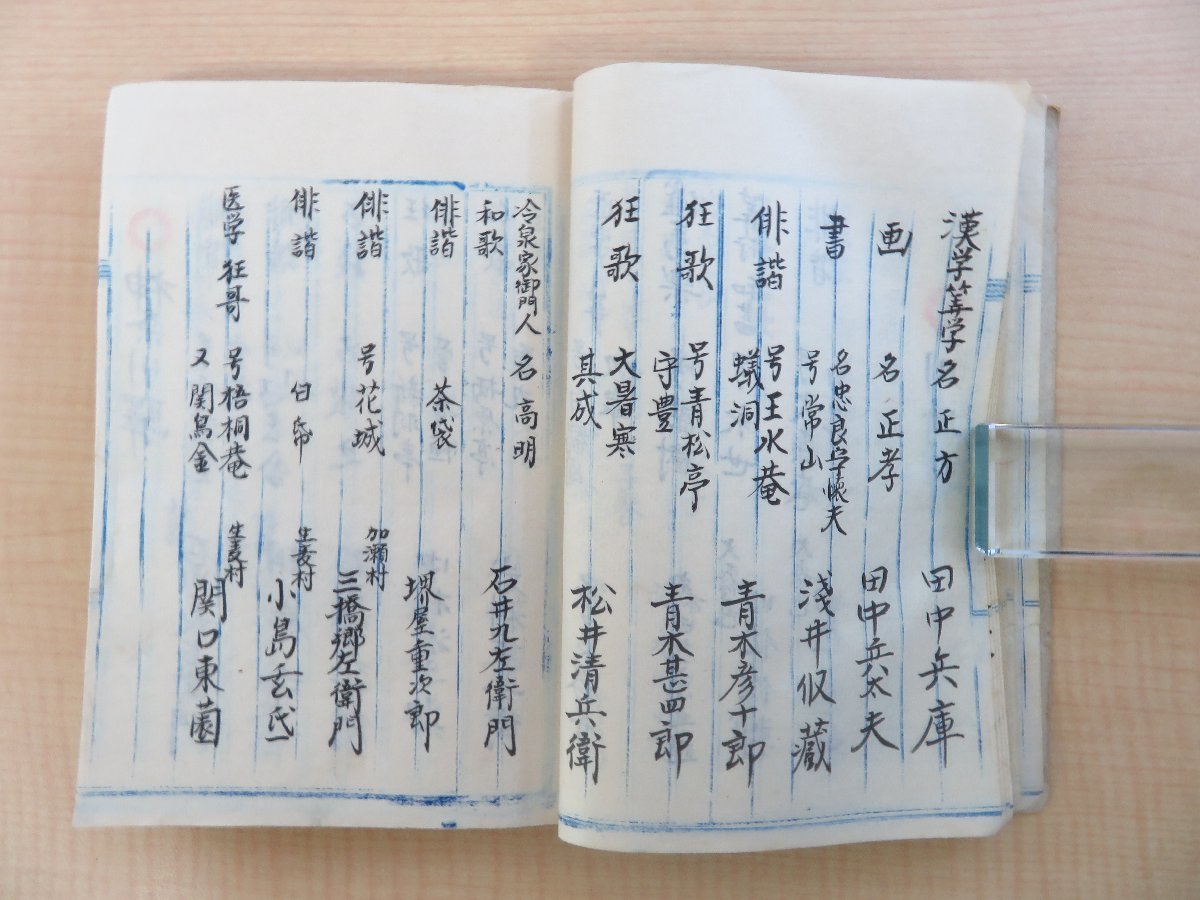 漢学筭学 名正方 田中兵庫
画 名正孝 田中兵太夫
書 名忠良字懐夫 号常山 淺井仅蔵
俳諧 号玉水菴 蟻洞 青木彦十郎
狂歌 号青松亭 守豊 青木甚四郎
狂歌 大暑寒 其成 松井清兵衛
冷泉家御門人
和歌 名高明 石井九左衛門
俳諧 茶袋 堺屋重次郎
俳諧 号花城 加瀬村 三橋郷左衛門
俳諧 白 生麦村 小島
医学 狂哥 号梧桐菴 又関鳥金 生麦村 関口東園